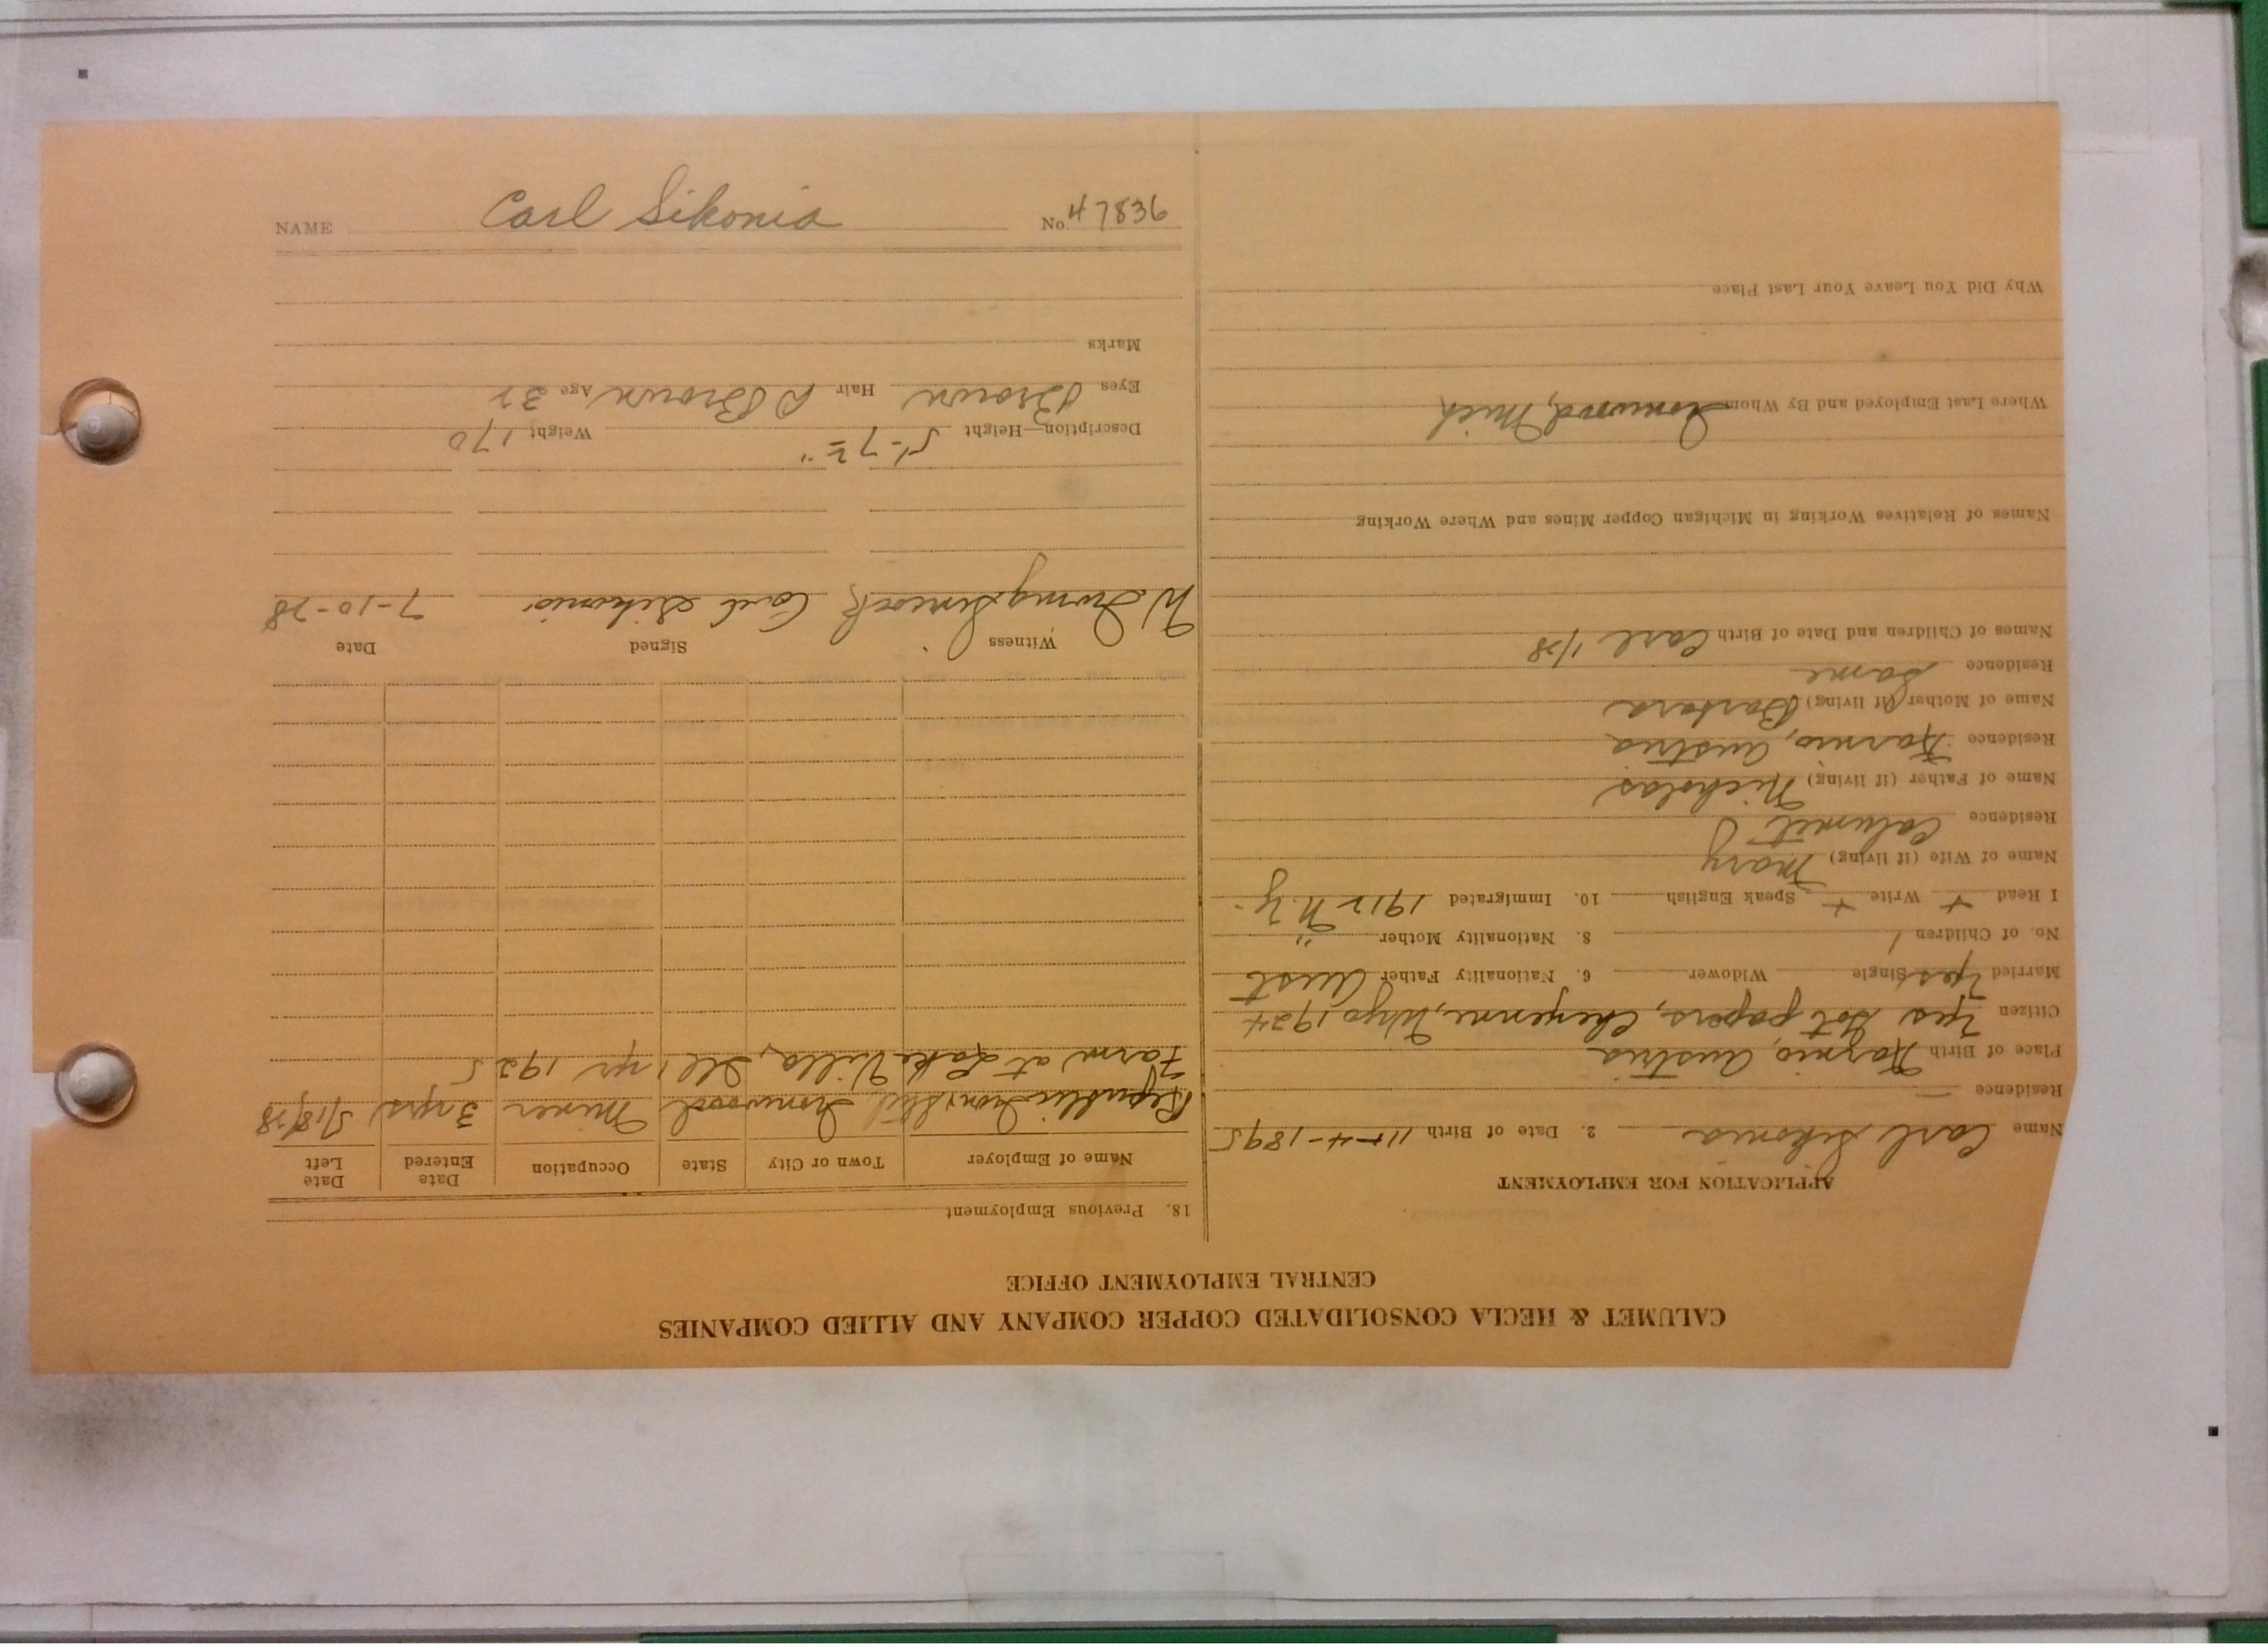 NAME Carl Sikonia No. 47836
CALUMET & HECLA CONSOLIDATED COPPER COMPANY AND ALLIED COMPANIES
CENTRAL EMPLOYMENT OFFICE
APPLICATION FOR EMPLOYMENT
Name Carl Sikonia 2. Date of Birth 11-4-1895
Residence —
Place of Birth Austria
Citizen Yes Got papers, Cheyenne, Wyo 1924
Married Yes Single Widower 6. Nationality Father Aust
No. of Children 1 8. Nationality Mother "
I Read + Write + Speak English 10. Immigrated 1912 N.Y.
Name of Wife (if living) Mary
Residence Calumet
Name of Father (if living) Nicholas
Residence Austria
Name of Mother (if living) Barbara
Residence Same
Names of Children and Date of Birth Carl 1/28
Names of Relatives Working in Michigan Copper Mines and Where Working
Where Last Employed and By Whom Ironwood, Mich
Why Did You Leave Your Last Place
18. Previous Employment
Name of Employer Town or City State Occupation Date Entered Date Left
Republic Iron & Steel Ironwood Miner 3 yrs 5/18/28
Farm at Lake Villa, Ill 1 yr 1925
Witness Signed Date
W. Carl Sikonia 7-10-28
Description—Height 5'-7½" Weight 170
Eyes Brown Hair D Brown Age 32
Marks